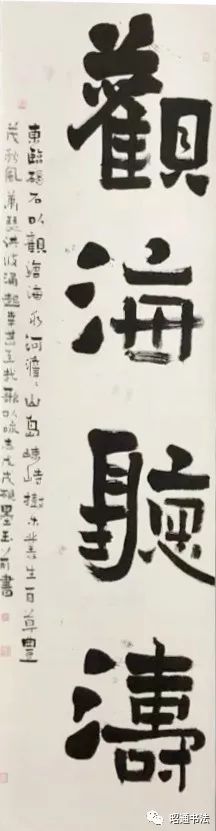 觀海聽濤
東臨碣石以觀滄海水河澹〻山島竦峙樹木叢生百草豐
茂秋風蕭瑟洪波涌起幸甚至哉歌以詠志戊戌書
昭通书法